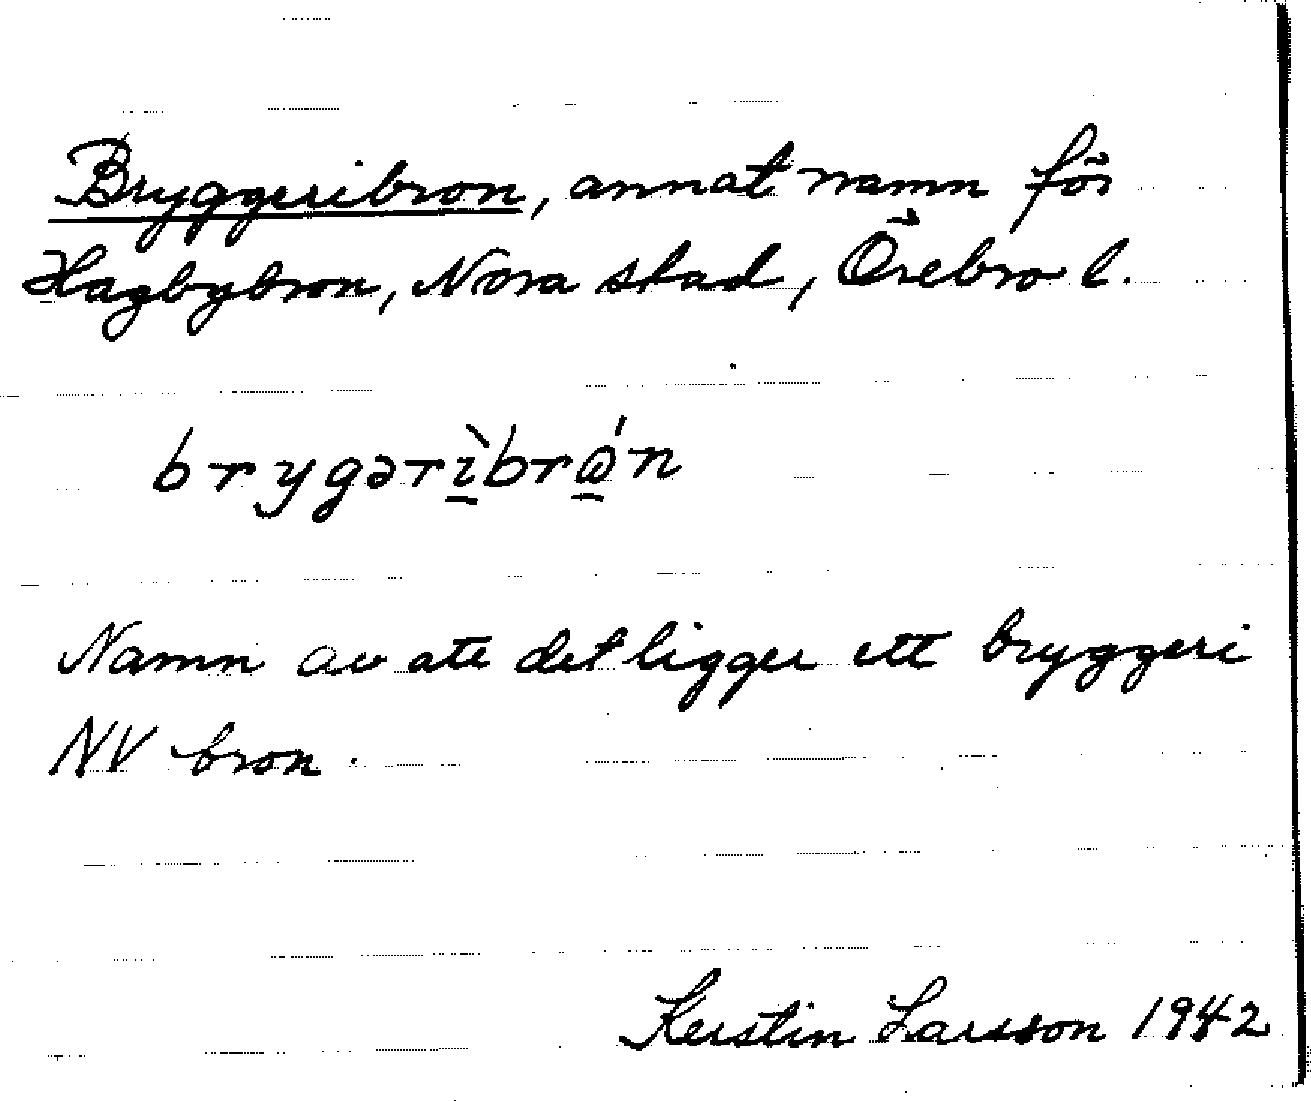 Bryggeribron, annat namn för
Hagbybron, Nora stad, Örebro l.
brygərì̠brώ̠n
Namn av att det ligger ett bryggeri
NV bron.
Kerstin Larsson 1942